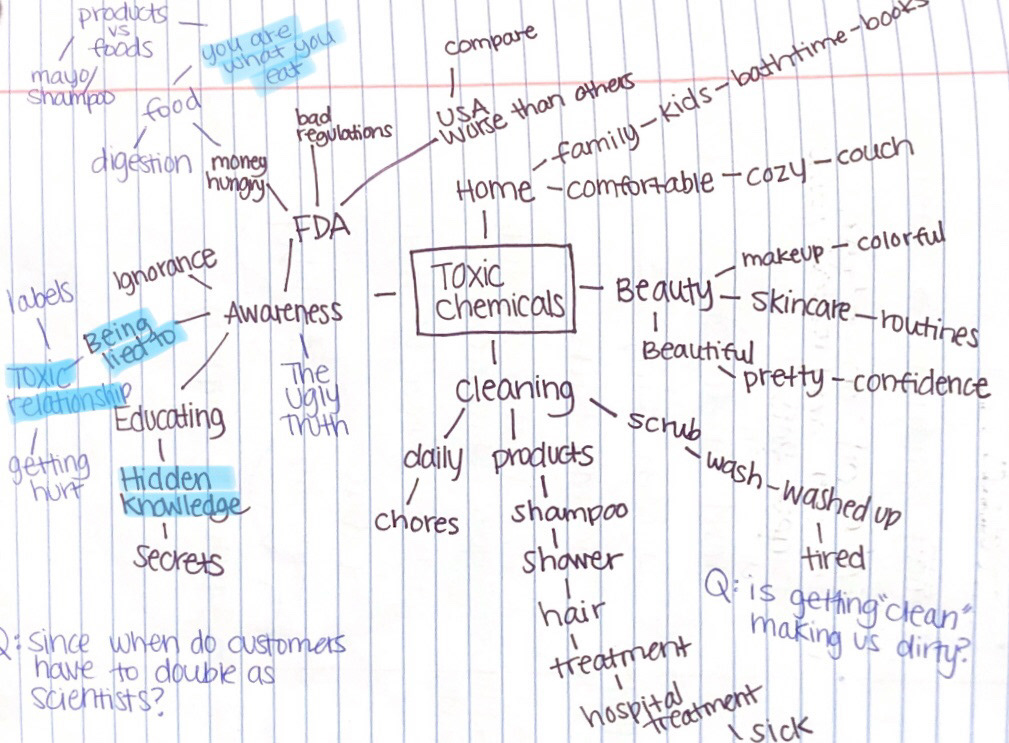 products
vs
foods
mayo/
shampoo
you are
what you
eat
food
digestion
money
hungry
bad
regulations
FDA
compare
USA
worse than others
Home
family - kids - bathtime - books
comfortable - cozy - couch
Toxic
chemicals
Beauty
makeup - colorful
skincare - routines
Beautiful
pretty - confidence
Awareness
Ignorance
Being
lied to
labels
Toxic
relationship
getting
hurt
The
Ugly
Truth
Educating
Hidden
Knowledge
Secrets
cleaning
daily
chores
products
shampoo
shower
hair
treatment
hospital
treatment
sick
scrub
wash - washed up
tired
Q: is getting "clean"
making us dirty?
Q: since when do customers
have to double as
scientists?